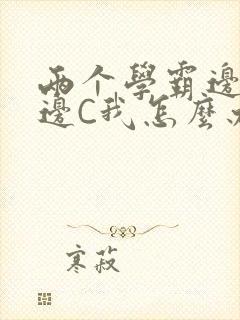 兩个學霸邊
邊C我怎麼
寒菽